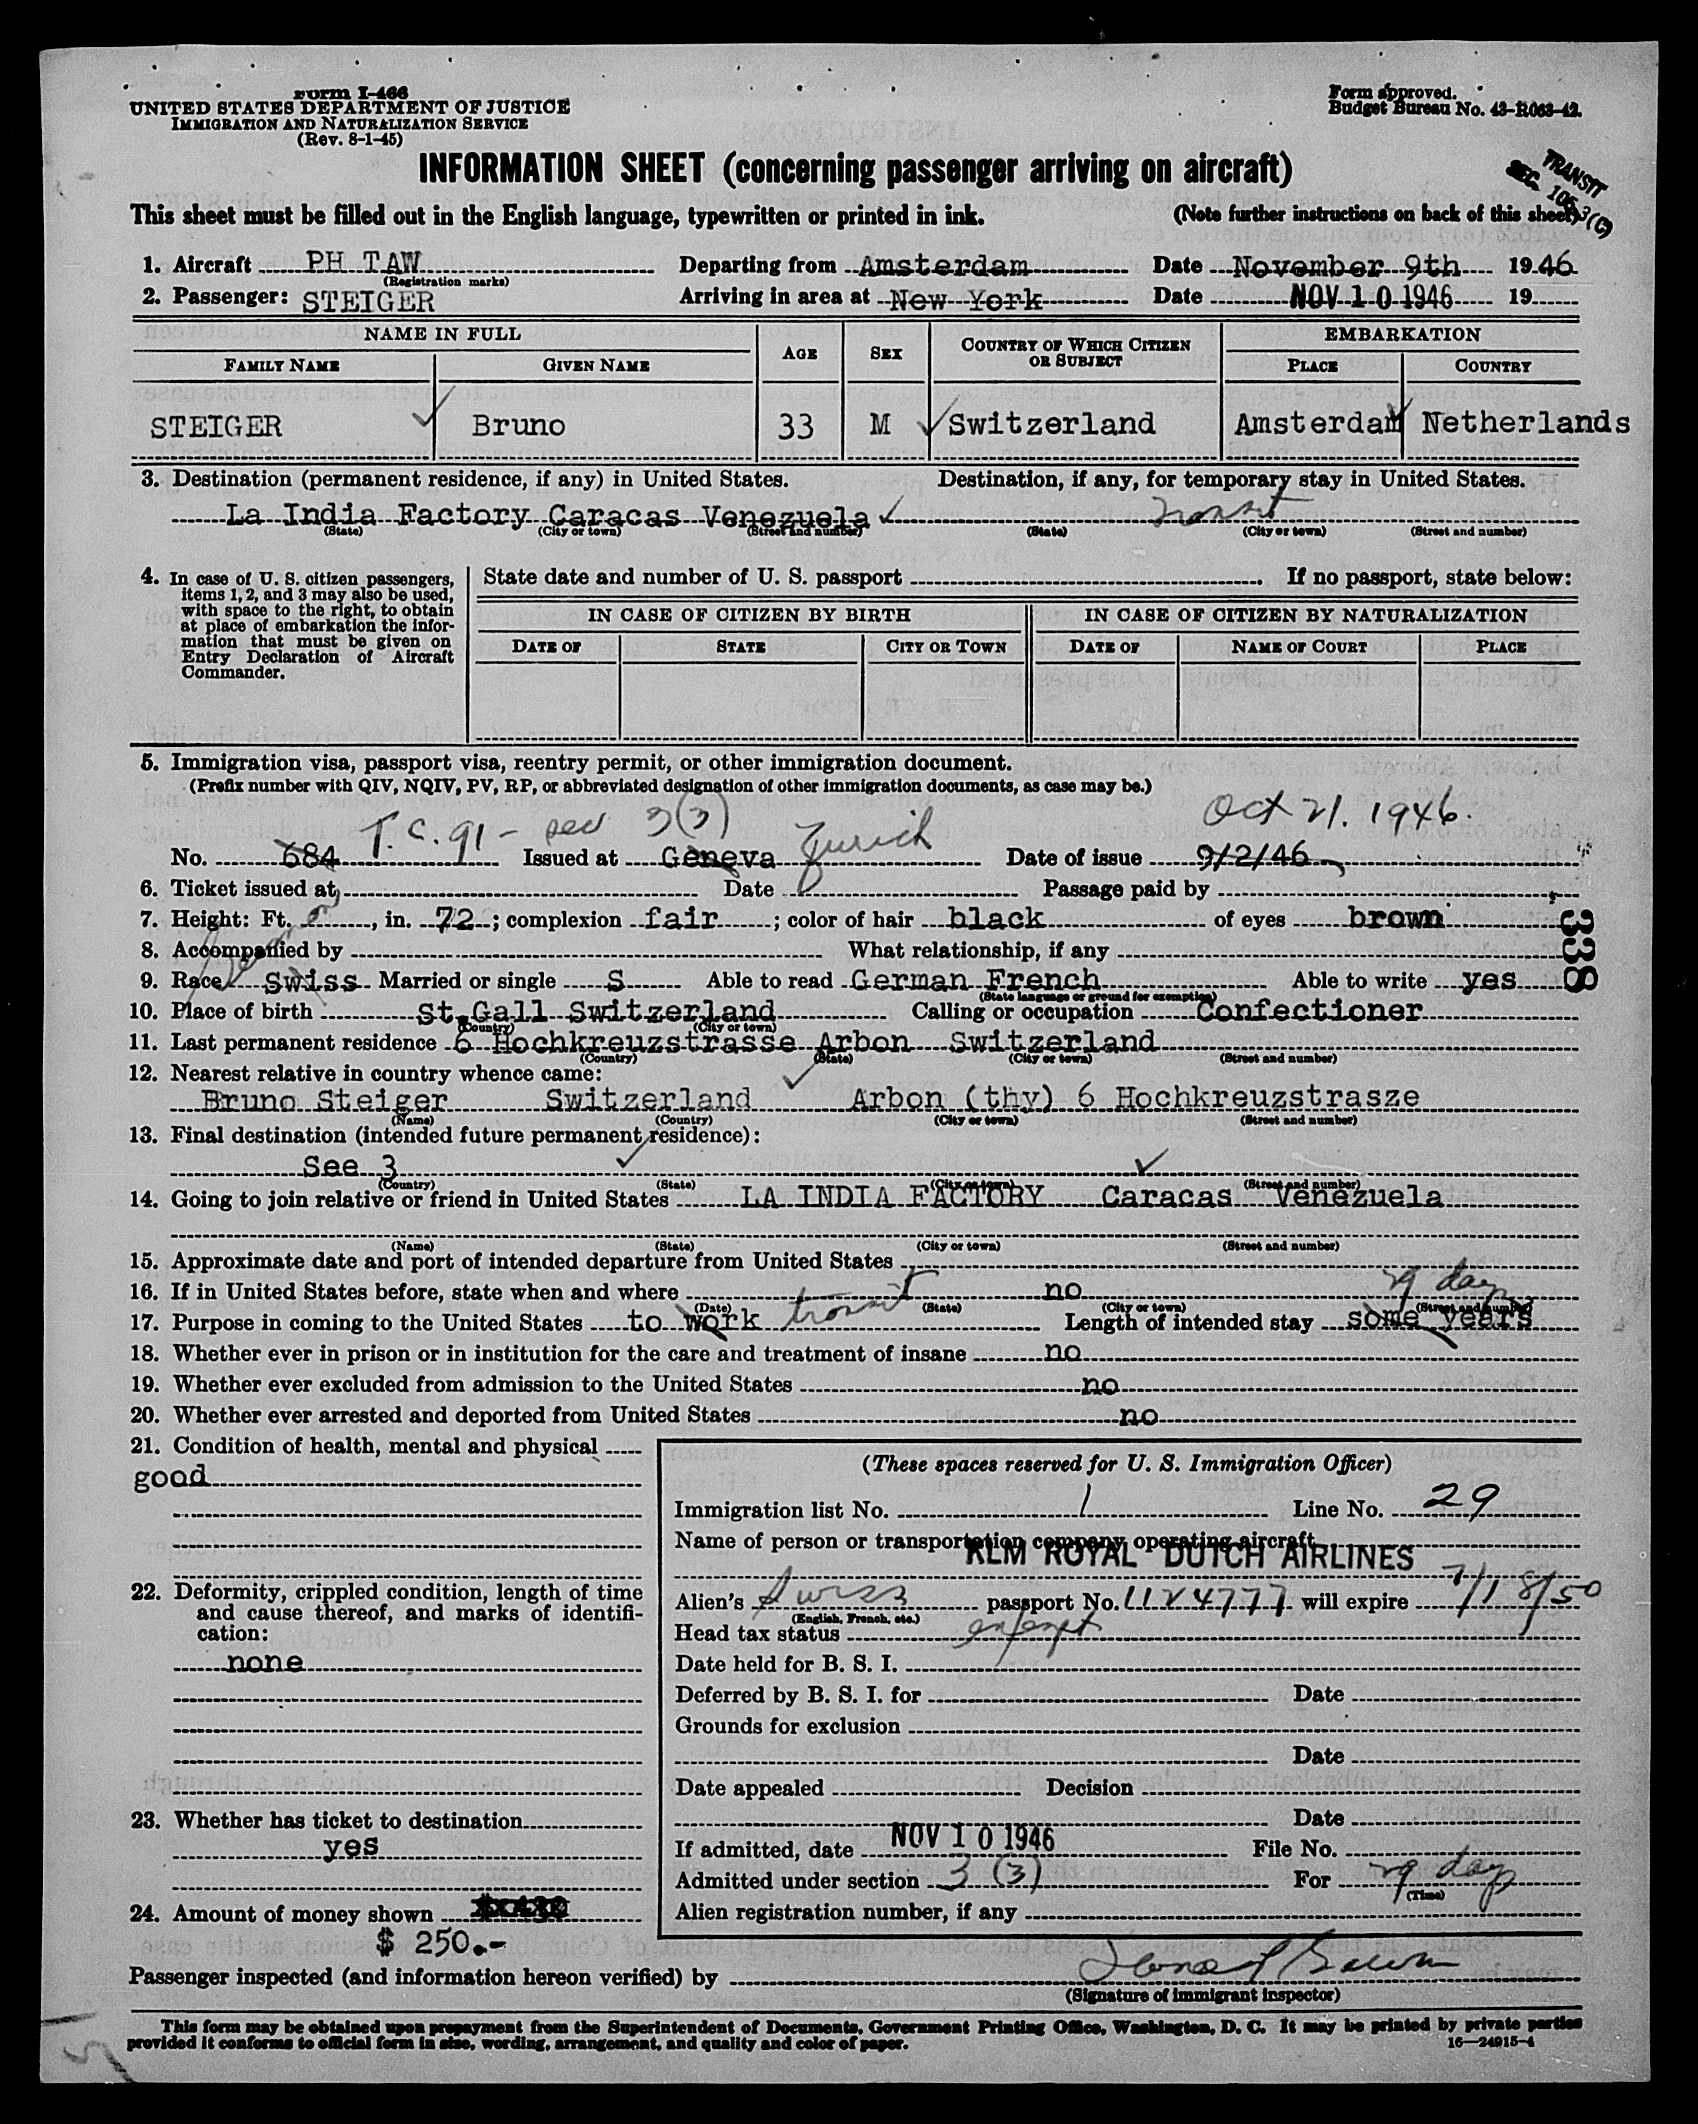 Form I-466
UNITED STATES DEPARTMENT OF JUSTICE
IMMIGRATION AND NATURALIZATION SERVICE
(Rev. 8-1-45)
Form approved.
Budget Bureau No. 43-R063-42.
INFORMATION SHEET (concerning passenger arriving on aircraft)
TRANSIT
SEC. 105.3(C)
This sheet must be filled out in the English language, typewritten or printed in ink. (Note further instructions on back of this sheet)
1. Aircraft PH TAW Departing from Amsterdam Date November 9th 1946
(Registration marks)
2. Passenger: STEIGER Arriving in area at New York Date NOV 10 1946 19
NAME IN FULL AGE SEX COUNTRY OF WHICH CITIZEN OR SUBJECT EMBARKATION
FAMILY NAME GIVEN NAME PLACE COUNTRY
STEIGER Bruno 33 M Switzerland Amsterdam Netherlands
3. Destination (permanent residence, if any) in United States. Destination, if any, for temporary stay in United States.
La India Factory Caracas Venezuela transit
(State) (City or town) (Street and number) (State) (City or town) (Street and number)
4. In case of U. S. citizen passengers, items 1, 2, and 3 may also be used, with space to the right, to obtain at place of embarkation the information that must be given on Entry Declaration of Aircraft Commander.
State date and number of U. S. passport . If no passport, state below:
IN CASE OF CITIZEN BY BIRTH IN CASE OF CITIZEN BY NATURALIZATION
DATE OF STATE CITY OR TOWN DATE OF NAME OF COURT PLACE
5. Immigration visa, passport visa, reentry permit, or other immigration document.
(Prefix number with QIV, NQIV, PV, RP, or abbreviated designation of other immigration documents, as case may be.)
T.C. 91 - sec 3(3) Zurich Oct 21. 1946.
No. 684 Issued at Geneva Date of issue 9/2/46
6. Ticket issued at, Date Passage paid by
7. Height: Ft. , in. 72 ; complexion fair ; color of hair black of eyes brown
338
8. Accompanied by What relationship, if any
9. Race Swiss Married or single S Able to read German French Able to write yes
(State language or ground for exemption)
10. Place of birth St.Gall Switzerland Calling or occupation Confectioner
(Country) (City or town)
11. Last permanent residence 6 Hochkreuzstrasse Arbon Switzerland
(Country) (State) (City or town) (Street and number)
12. Nearest relative in country whence came:
Bruno Steiger Switzerland Arbon (thy) 6 Hochkreuzstrasze
(Name) (Country) (City or town) (Street and number)
13. Final destination (intended future permanent residence):
See 3
(Country) (State) (City or town) (Street and number)
14. Going to join relative or friend in United States LA INDIA FACTORY Caracas Venezuela
(Name) (State) (City or town) (Street and number)
15. Approximate date and port of intended departure from United States
16. If in United States before, state when and where no
(Date) (State) (City or town) (Street and number)
29 days
17. Purpose in coming to the United States to work transit Length of intended stay some years
18. Whether ever in prison or in institution for the care and treatment of insane no
19. Whether ever excluded from admission to the United States no
20. Whether ever arrested and deported from United States no
21. Condition of health, mental and physical
good
22. Deformity, crippled condition, length of time and cause thereof, and marks of identification:
none
23. Whether has ticket to destination
yes
24. Amount of money shown
$ 250.-
(These spaces reserved for U. S. Immigration Officer)
Immigration list No. 1 Line No. 29
Name of person or transportation company operating aircraft
KLM ROYAL DUTCH AIRLINES
Alien's Swiss passport No. 1124777 will expire 7/18/50
(English, French, etc.)
Head tax status exempt
Date held for B. S. I.
Deferred by B. S. I. for Date
Grounds for exclusion
Date
Date appealed Decision
Date
If admitted, date NOV 10 1946 File No.
Admitted under section 3 (3) For 29 days
(Time)
Alien registration number, if any
Passenger inspected (and information hereon verified) by
(Signature of immigrant inspector)
This form may be obtained upon prepayment from the Superintendent of Documents, Government Printing Office, Washington, D. C. It may be printed by private parties
provided it conforms to official form in size, wording, arrangement, and quality and color of paper. 16—24915-4